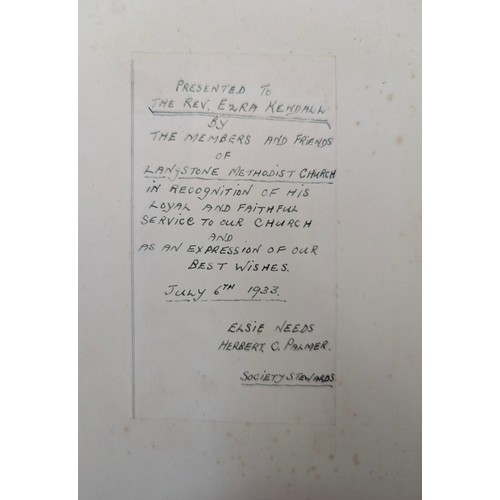 PRESENTED TO
THE REV. EZRA KENDALL
BY
THE MEMBERS AND FRIENDS
OF
LANGSTONE METHODIST CHURCH
IN RECOGNITION OF HIS
LOYAL AND FAITHFUL
SERVICE TO OUR CHURCH
AND
AS AN EXPRESSION OF OUR
BEST WISHES.
JULY 6TH 1933.
ELSIE NEEDS
HERBERT. C. PALMER.
SOCIETY STEWARDS